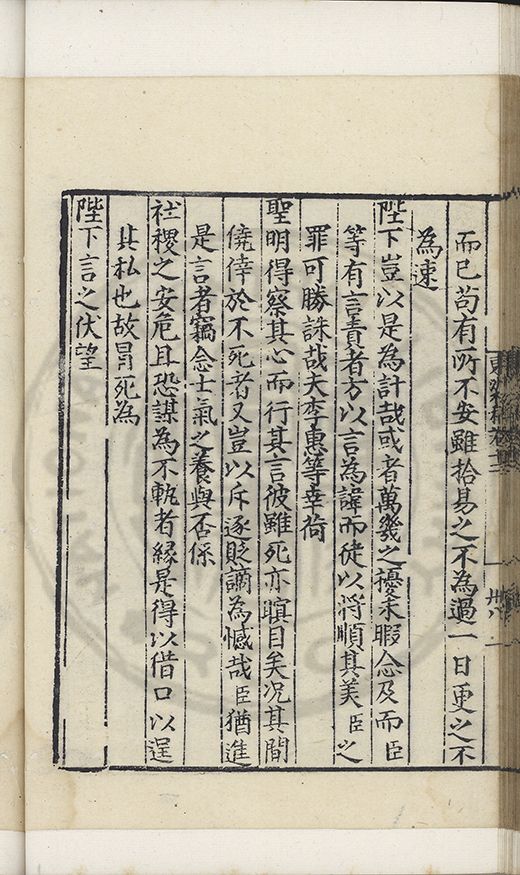 而已苟有所不安雖拾易之不為過一日更之不
為速
陛下豈以是為計哉或者萬幾之擾未暇念及而臣
等有言責者方以言為諱而徒以將順其美臣之
罪可勝誅哉夫李惠等幸荷
聖明得察其心而行其言彼雖死亦瞑目矣况其間
僥倖於不死者又豈以斥逐貶謫為憾哉臣猶進
是言者竊念士氣之養與否係
社稷之安危且恐謀為不軌者緣是得以借口以逞
其私也故冒死為
陛下言之伏望